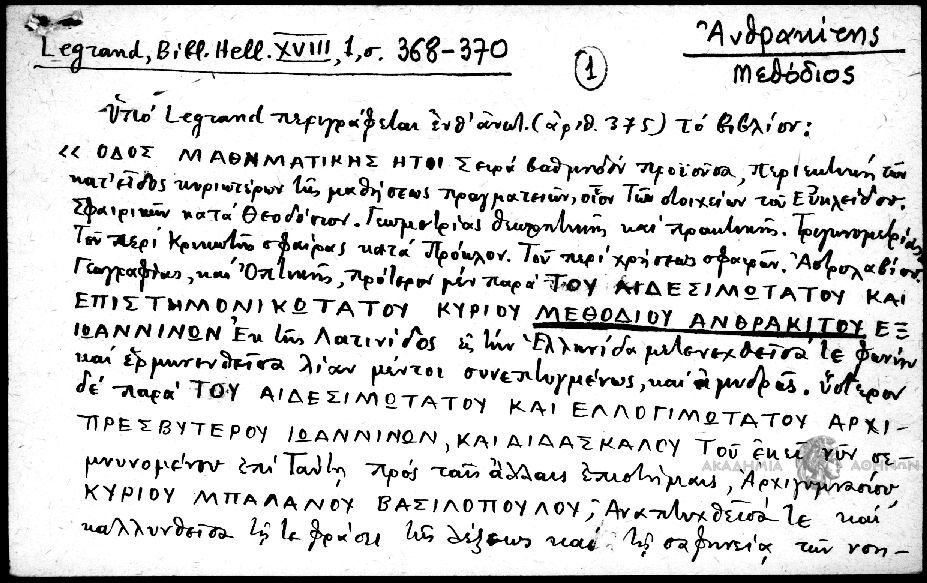 Legrand, Bibl. Hell. XVIII, 1, σ. 368-370
Ἀνθρακίτης
Μεθόδιος
1
Ὑπό Legrand περιγράφεται ἐνθ' ἀνωτ. (ἀριθ. 375) τό βιβλίον:
«ΟΔΟΣ ΜΑΘΗΜΑΤΙΚΗΣ ΗΤΟΙ Σειρά βαθμηδόν προϊοῦσα, περιεκτική τῶν
κατ' εἶδος κυριωτέρων τῆς μαθήσεως πραγματειῶν, οἷον Τῶν στοιχείων τοῦ Εὐκλείδου.
Σφαιρικῶν κατά Θεοδόσιον. Γεωμετρίας θεωρητικῆς καί πρακτικῆς. Τριγωνομετρίας
Τοῦ περί Κρικωτῆς σφαίρας κατά Πρόκλον. Τοῦ περί χρήσεως σφαιρῶν. Ἀστρολαβίου.
Γεωγραφίας, καί Ὀπτικῆς, πρότερον μέν παρά ΤΟΥ ΑΙΔΕΣΙΜΩΤΑΤΟΥ ΚΑΙ
ΕΠΙΣΤΗΜΟΝΙΚΩΤΑΤΟΥ ΚΥΡΙΟΥ ΜΕΘΟΔΙΟΥ ΑΝΘΡΑΚΙΤΟΥ ΕΞ
ΙΩΑΝΝΙΝΩΝ Ἐκ τῆς Λατινίδος εἰς τήν Ἑλληνίδα μετενεχθεῖσά τε φωνήν
καί ἑρμηνευθεῖσα λίαν μέντοι συνεπτυγμένως, καί ἀμυδρῶς. ὕστερον
δέ παρά ΤΟΥ ΑΙΔΕΣΙΜΩΤΑΤΟΥ ΚΑΙ ΕΛΛΟΓΙΜΩΤΑΤΟΥ ΑΡΧΙ-
ΠΡΕΣΒΥΤΕΡΟΥ ΙΩΑΝΝΙΝΩΝ, ΚΑΙ ΔΙΔΑΣΚΑΛΟΥ Τοῦ ἐκεῖ νῦν σε-
μνυνομένου ἐπί Ταύτῃ πρός ταῖς ἄλλαις ἐπιστήμαις, Ἀρχιγυμνασίου,
ΑΚΑΔΗΜΙΑ ΑΘΗΝΩΝ
ΚΥΡΙΟΥ ΜΠΑΛΑΝΟΥ ΒΑΣΙΛΟΠΟΥΛΟΥ, Ἀναπτυχθεῖσά τε καί
καλλυνθεῖσα τῇ τε φράσει τῆς λέξεως καί τῇ σαφηνείᾳ τῶν νοη-